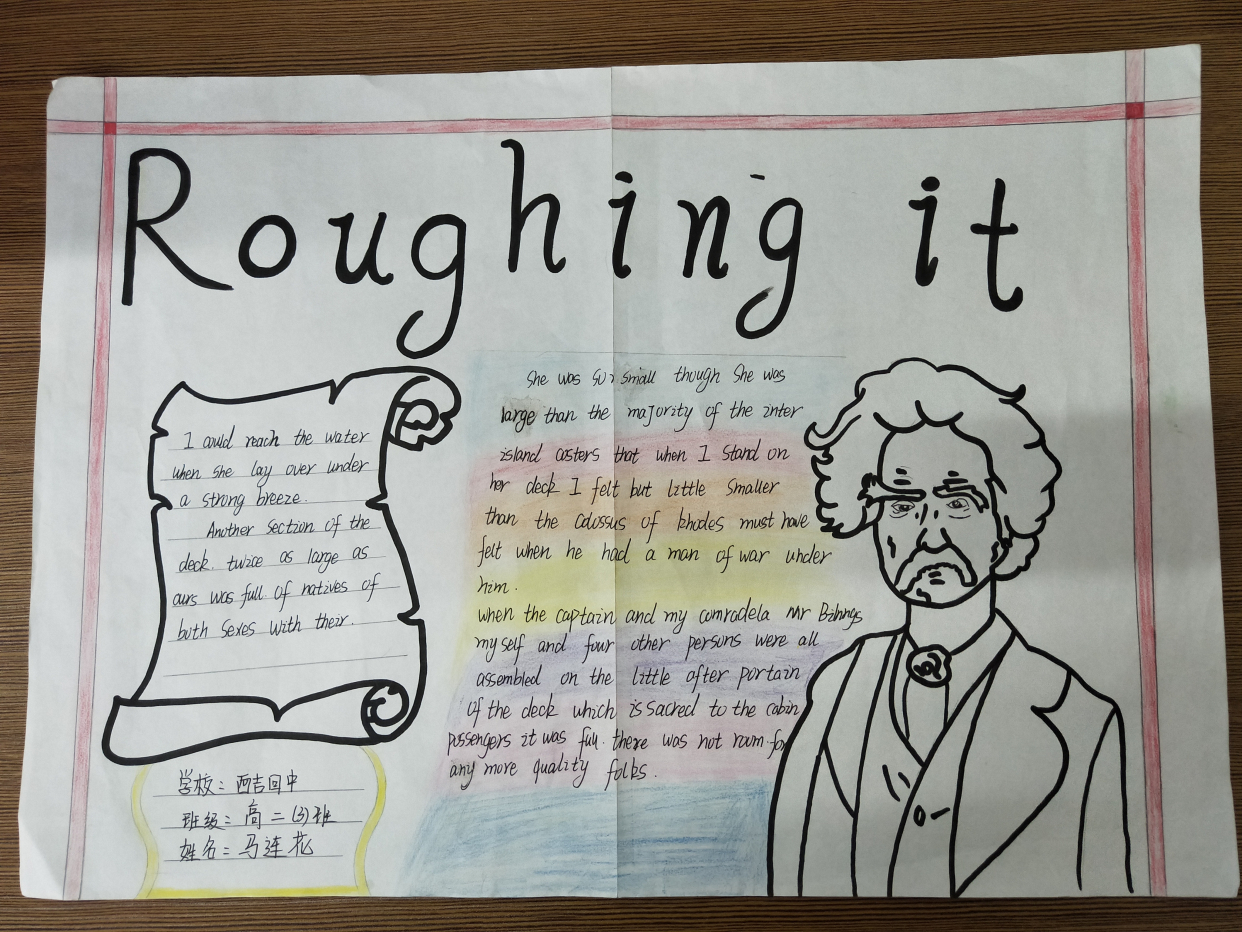 Roughing it
I could reach the water
when she lay over under
a strong breeze.
Another section of the
deck. twice as large as
ours was full of natives of
both sexes with their.
She was so small though She was
large than the majority of the inter
island casters that when I stand on
her deck I felt but little smaller
than the colossus of Rhodes must have
felt when he had a man of war under
him.
when the captain and my comradela Mr Bilings
myself and four other persons were all
assembled on the little after portain
of the deck which is sacred to the cabin
passengers it was full. there was not room for
any more quality folks.
学校：西吉回中
班级：高二(3)班
姓名：马连花